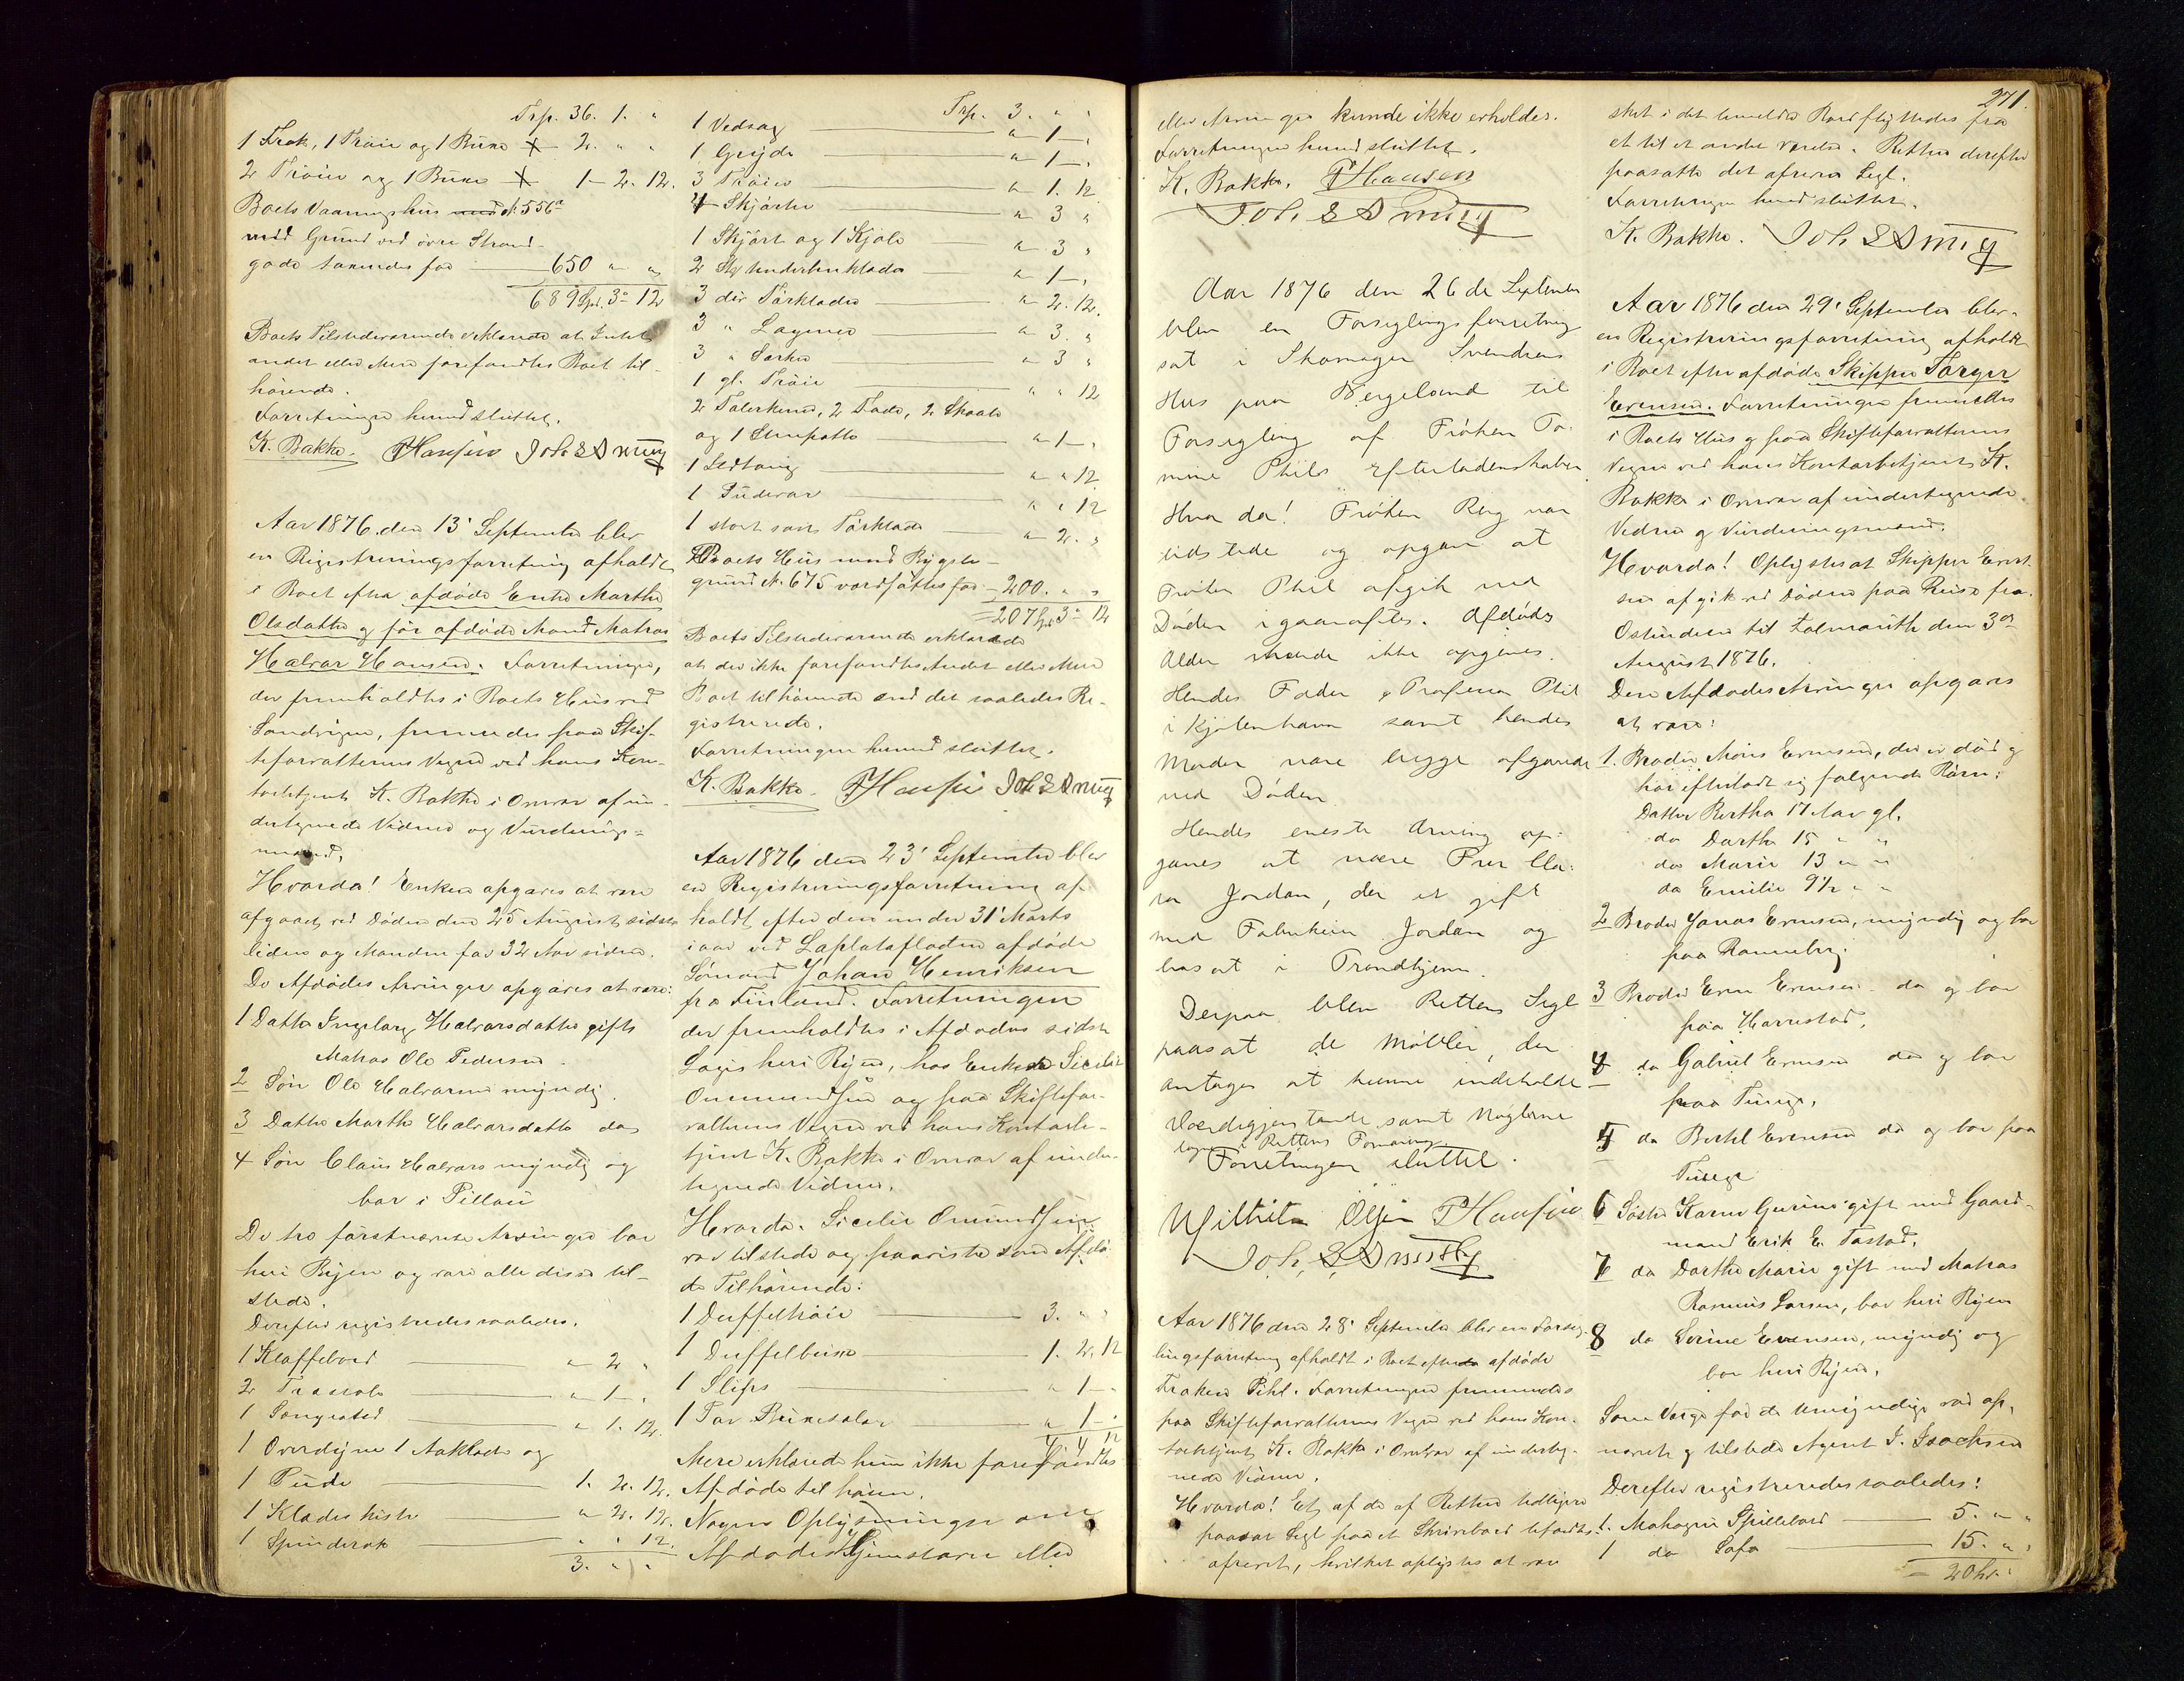 Trp. 36. 1. "
1 Frak, 1 Trøie og 1 Buxe — 2. " "
2 Trøier og 1 Buxe — 1 — 2. 12.
Boets Vaaningshus med No 556a
med Grund ved øvre Strand-
gade taxeredes for — 650 " "
689 Spd. 3 " 12
Boets Tilstedeværende erklærede at Intet
andet eller Mere forefandtes Boet til-
hørende.
Forretningen hermed sluttet.
K. Bakke. PHansen Joh. S. Smug
Aar 1876 den 13' September blev
en Registreringsforretning afholdt
i Boet efter afdøde Enke Marthe
Olsdatter og før afdøde Mand Matros
Halvor Hansen. Forretningen,
der fremholdtes i Boets Huus ved
Sandvigen, fremmedes paa Skif-
teforvalterens Vegne ved hans Kon-
torbetjent K. Bakke i Overvær af un-
dertegnede Vidner og Vurderings-
mænd.
Hvorda! Enken opgaves at være
afgaaet ved Døden den 25 August sidst-
leden og Manden for 32 Aar siden.
De Afdødes Arvinger opgaves at være:
1 Datter Ingeborg Halvorsdatter gift
Matros Ole Pedersen
2 Søn Ole Halvorsen myndig.
3 Datter Marthe Halvorsdatter do
4 Søn Claus Halvors myndig og
bor i Pillau
De tre førstnævnte Arvinger bor
her i Byen og vare alle disse til-
stede.
Derefter registreredes saaledes.
1 Klaffebord — " 2 "
2 Træstole — " 1 — "
1 Sengested — " 1. 12.
1 Overdyne 1 Aaklæde og
1 Pude — 1. 2. 12.
1 Klædeskiste — " 2. 12.
1 Spinderok — " " 12.
3. " "
Trp. 3. " "
1 Vedsag — " 1 — "
1 Gryde — " 1 — "
3 Trøier — " 1. 12
4 Skjørter — " 3 "
1 Skjørt og 1 Kjole — " 3 "
2 Underbenklæder — " 1 — "
3 div Tørklæder — " 2. 12.
3 " Lagener — " 3. "
3 " Særker — " 3 "
1 gl. Trøie — " " 12
2 Talerkener, 2 Fade, 2 Skaale
og 1 Steenpotte — " 1 — "
1 Ildtang — " " 12
1 Pudevar — " " 12
1 stort sort Tørklæde — " 2. "
Boets Huus med Bygsle-
grund No 675 værdsattes for — 200. " "
207 Spd. 3 " 12
Boets Tilstedeværende erklærede
at der ikke forefandtes Andet eller Mere
Boet tilhørende end det saaledes Re-
gistrerede.
Forretningen hermed sluttet.
K. Bakke. PHansen Joh. S. Smug
Aar 1876 den 23' September blev
en Registreringsforretning af-
holdt efter den under 31' Marts
i aar ved Laplatafloden afdøde
Sømand Johan Henriksen
fra Finland. Forretningen
der fremholdtes i Afdødes sidste
Logis her i Byen, hos Enken Sicilie
Ommundsen og paa Skiftefor-
valterens Vegne ved hans Kontorbe-
tjent K. Bakke i Overvær af under-
tegnede Vidner.
Hvorda. Sicelie Omundsen
var tilstede og paaviste som Afdø-
de Tilhørende:
1 Duffeltrøie — 3. " "
1 Duffelbuxe — 1. 2. 12
1 Slips — " 1 — "
1 Par Buxeseler — " 1 — "
4 4 12
Mere erklærede hun ikke forefandtes
Afdøde tilhøren.
Nogen Oplysninger om
Afdødes Hjemstavn eller
271.
eller Arvinger kunde ikke erholdes.
Forretningen hermed sluttet.
K. Bakke. PHansen
Joh. S. Smug
Aar 1876 den 26de September
blev en Forseglingsforretning
sat i Skomager Svendsens
Hus paa Vergeland til
Forsegling af Frøken To-
mine Phils Efterladenskaber
Hvor da! Frøken Berg var
tilstede og opgav at
Frøken Phil afgik ved
Døden igaaraftes. Afdødes
Alder kunde ikke opgives.
Hendes Fader, Professor Phil
i Kjøbenhavn samt hendes
Moder vare begge afgaaede
ved Døden.
Hendes eneste Arving op-
gaves at være Fru Cla-
ra Jordan, der er gift
med Fabrikeier Jordan og
bosat i Trondhjem.
Derpaa blev Rettens Segl
paasat de Møbler, der
antages at kunne indeholde
Værdigjenstande samt Nøglerne
tagne i Rettens Forvaring.
Forretningen sluttet.
Wilhelm Olsen PHansen
Joh. S. Smug
Aar 1876 den 28' September blev en Forseg-
lingsforretning afholdt i Boet efter afdøde
Frøken Pihl. Forretningen fremmedes
paa Skifteforvalterens Vegne ved hans Kon-
torbetjent K. Bakke i Overvær af underteg-
nede Vidner.
Hvorda! Et af de af Retten tidligere
paasat Segl paa et Skrivebord befandtes
afrevet, hvilket oplystes at være
skeet i det bemeldte Bord flyttedes fra
et til et andet Værelse. Retten derefter
paasatte det afrevne Segl.
Forretningen hermed sluttet.
K. Bakke. Joh. S. Smug
Aar 1876 den 29' September blev
en Registreringsforretning afholdt
i Boet efter afdøde Skipper Torger
Evensen. Forretningen fremmedes
i Boets Hus og paa Skifteforvalterens
Vegne ved hans Kontorbetjent K.
Bakke i Overvær af undertegnede
Vidner og Vurderingsmænd.
Hvorda! Oplystes at Skipper Even-
sen afgik ved Døden paa Reise fra
Ostindien til Falmouth den 3die
August 1876.
Den Afdødes Arvinger opgaves
at være:
1. Broder Møns Evensen, der er død og
har efterladt sig følgende Børn:
Datter Bertha 17 Aar gl.
do Dorthe 15 " "
do Marie 13 " "
do Emilie 9½ " "
2 Broder Jonas Evensen, myndig og bor
paa Ranneberg.
3 Broder Even Evensen do og bor
paa Harrestad.
4 do Gabriel Evensen do og bor
paa Tunge.
5 do Bertel Evensen do og bor paa
Tunge
6 Søster Karen Gurine gift med Gaard-
mand Erik E. Tastad.
7 do Dorthe Marie gift med Matros
Rasmus Larsen, bor her i Byen
8 do Serine Evensen, myndig og
bor her i Byen.
Som Værge for de Umyndige var op-
nævnt og tilstede Agent I. Isachsen
Derefter registreredes saaledes:
1. Mahogni Spillebord — 5. " "
1 do Sofa — 15. " "
20 kr. "